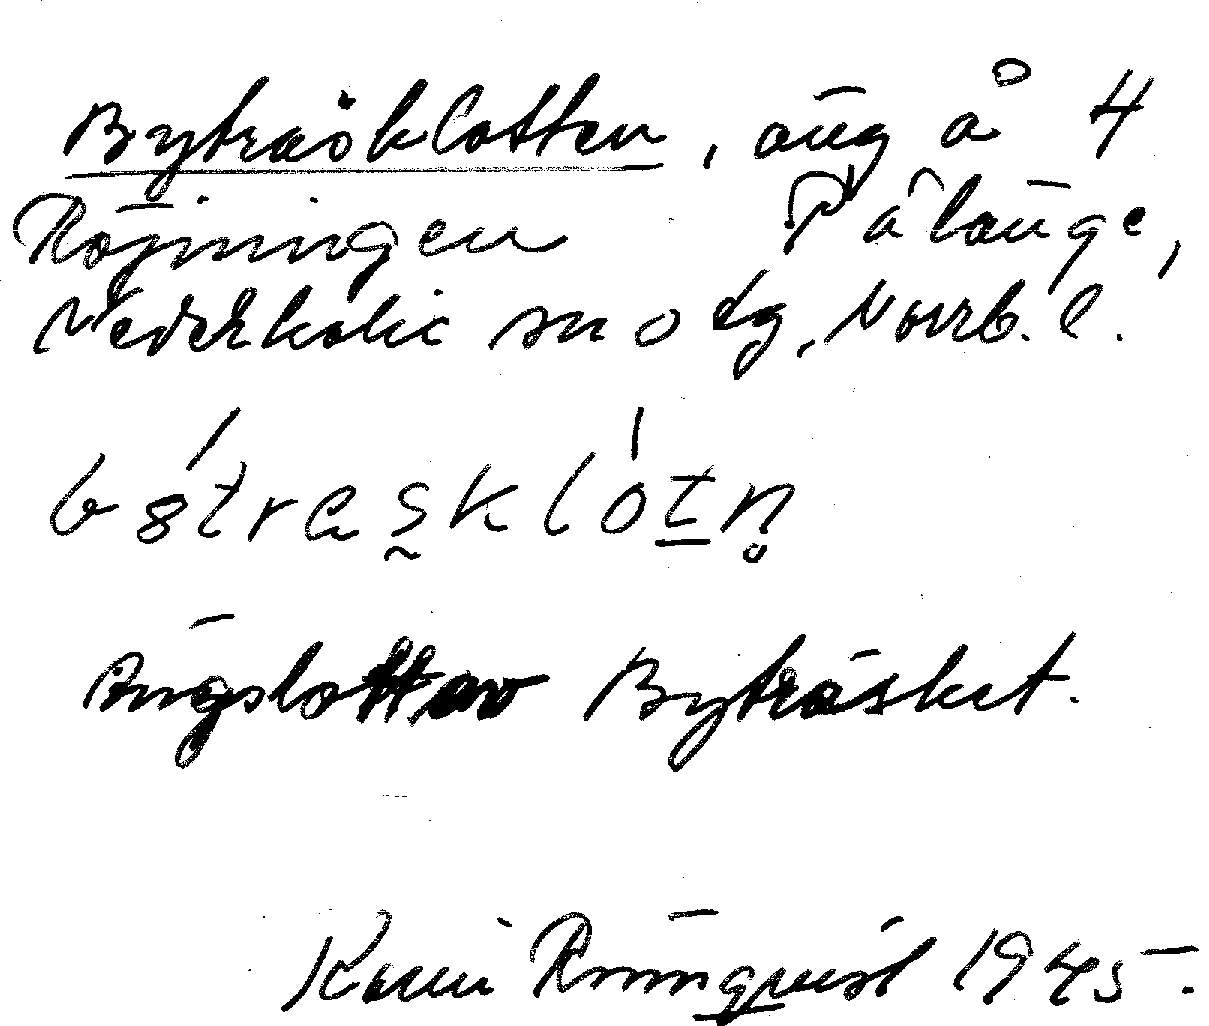 Byträsklotten, äng å 4
Röjningen Pålänge,
Nederkalix sn o tg, Norrb. l.
b8́traşklótn̥
Ängslott av Byträsket.
Karin Rönnqvist 1945.